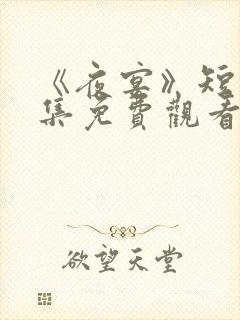 《夜宴》短
集免費觀看
欲望天堂